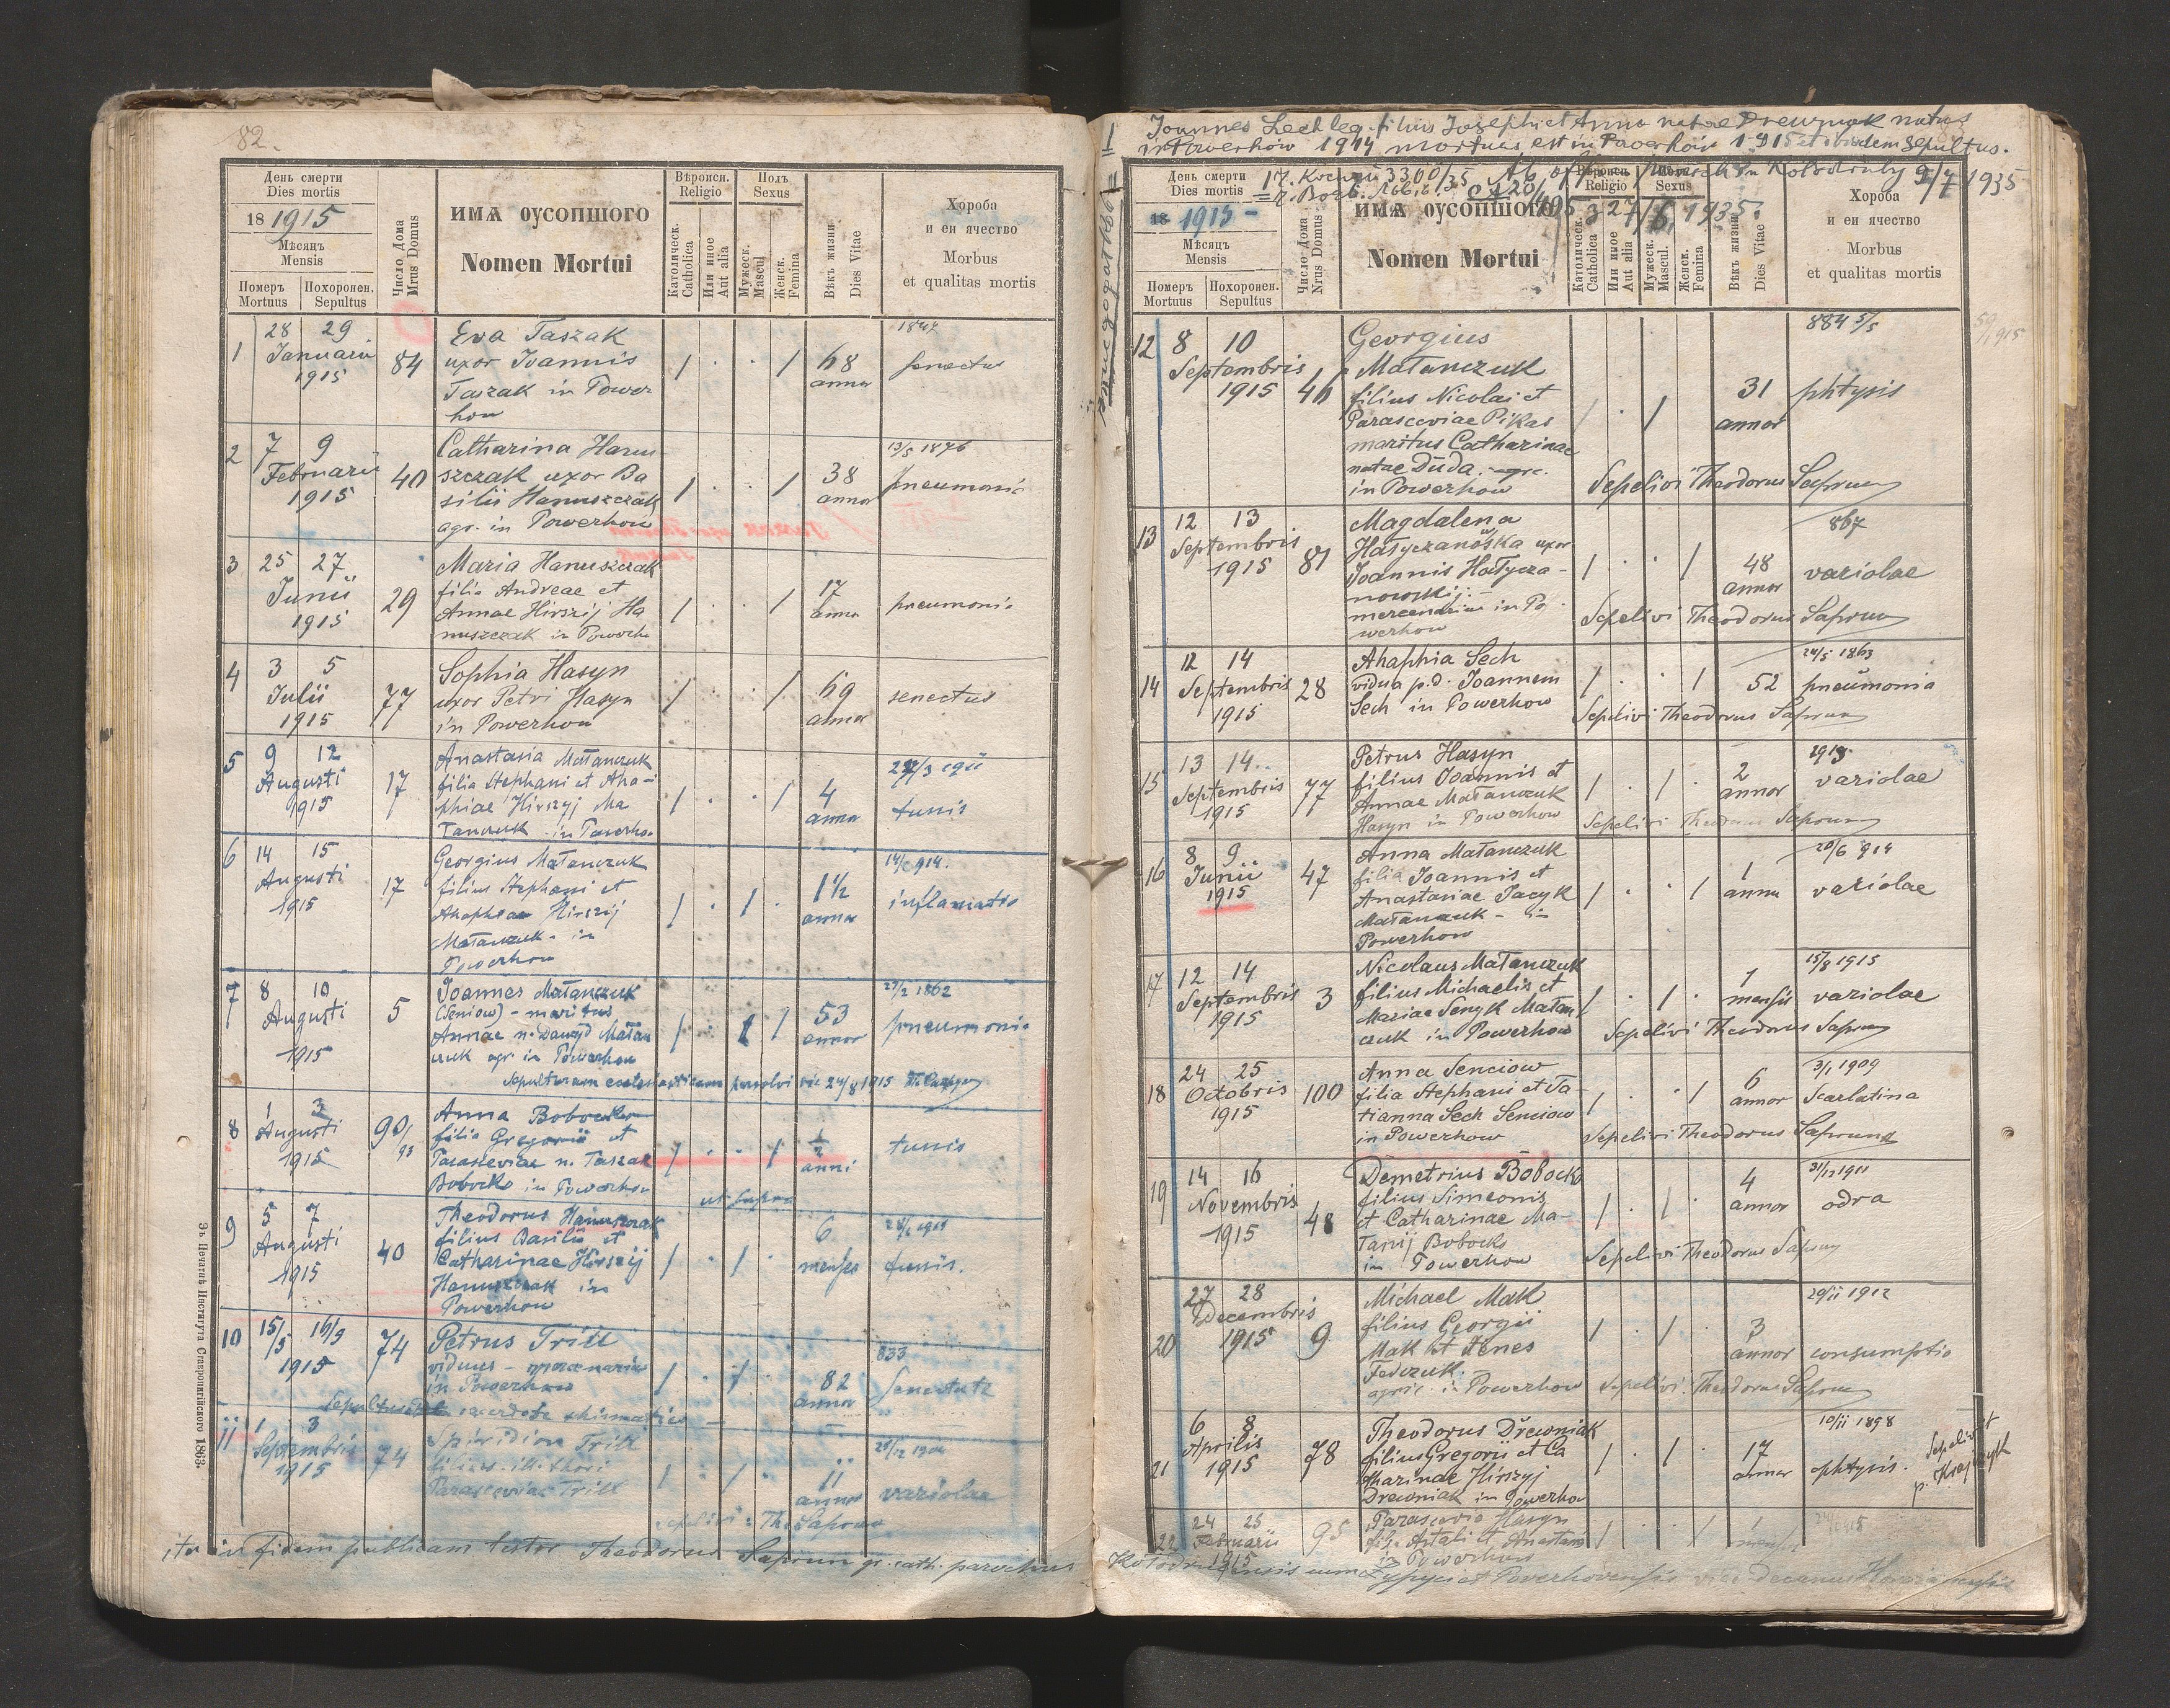 82.
День смерти
Dies mortis
18 1915
Мѣсяцъ
Mensis
Померъ
Mortuus
Похоронен.
Sepultus
Число Дома
Mrus Domus
ИМѦ ОУСОПШОГО
Nomen Mortui
Вѣроисп.
Religio
Католическ.
Catholica
Или иное
Aut alia
Полъ
Sexus
Мужеск.
Mascul
Женск.
Femina
Вѣкъ жизни
Dies Vitae
Хороба
и еи ячество
Morbus
et qualitas mortis
1 28 29
Januarii
1915
84
Eva Taszak
uxor Joannis
Taszak in Power
how
1 . . 1
68
annor
1847
senectus
2 7 9
Februarii
1915
40
Catharina Hanu
szczak uxor Ba
silii Hanuszczak
agr. in Powerhow
1 . . 1
38
annor
13/5 1876
pneumonia
3 25 27
Junii
1915
29
Maria Hanuszczak
filia Andreae et
Annae Hirszij Ha
nuszczak in Powerh
1 . . 1
17
annor
pneumonia
4 3 5
Julii
1915
77
Sophia Hasyn
uxor Petri Hasyn
in Powerhow
1 . . 1
69
annor
senectus
5 9 12
Augusti
1915
17
Anastasia Matanczuk
filia Stephani et Aha-
phiae Hirszyj Ma
tanczuk in Powerho.
1 . . 1
4
annor
tussis
6 14 15
Augusti
1915
17
Georgius Matanczuk
filius Stephani et
Ahaphiae Hirszij
Matanczuk - in
Powerhow
1 . 1 .
1 1/2
annor
inflamatio
7 8 10
Augusti
1915
5
Joannes Matanczuk
(Seniow) - maritus
Annae n. Dawyd Matan
czuk agr. in Powerhow
53
annor
27/2 1862
pneumonia
8 1 3
Augusti
1915
90/93
Anna Bobocko
filia Gregorii et
Parasceviae n. Taszak
Bobocko in Powerhow
1 . . 1
1/2
anni
tussis
ut supra
9 5 7
Augusti
1915
40
Theodorus Hanuszczak
filius Basilii et
Catharinae Hirszij
Hanuszczak in
Powerhow
1 . 1 .
6
menses
tussis.
10 15/5 16/5
1915
74
Petrus Trill
viduus - mercenarius
in Powerhow
1 . 1 .
82
annor
833
Senectute
sacerdote schismatico -
11 1 3
Septembris
1915
74
Spiridion Trill
Parasceviae Trill
1 . 1 .
11
annor
variolae
Sepelivi: Th. Saprun
ita in fidem publicam testor Theodorus Saprun gr. cath. parochus
Зъ Печатнѣ Института Ставропигійского 1863.
Joannes Sech leg. filius Josephi et Anna natae Drewniak natus
in Powerhow 1914 mortuus est in Powerhow 1915 et ibidem sepultus.
День смерти
Dies mortis
18 1915 -
Мѣсяцъ
Mensis
Померъ
Mortuus
Похоронен.
Sepultus
Число Дома
Nrus Domus
ИМѦ ОУСОПШОГО
Nomen Mortui
Вѣроисп.
Religio
Католическ.
Catholica
Или иное
Aut alia
Sexus
Мужеск.
Mascul.
Женск.
Femina
Вѣкъ жизни
Dies Vitae
Хороба
и еи ячество
Morbus
et qualitas mortis
12 8 10
Septembris
1915
Georgius
Matanczuk
filius Nicolai et
Parasceviae Pikas
maritus Catharinae
natae Duda. - agr.
in Powerhow
1 . 1
31
annor
884 5/5
phtysis
Sepelivi Theodorus Saprun
13 12 13
Septembris
1915
81
Magdalena
Hatyczanowska uxor
Joannis Hatycza-
nowskij. -
mercenarius in Po
werhow
1 . . 1
48
annor
867
variolae
Sepelivi Theodorus Saprun
14 12 14
Septembris
1915
28
Ahaphia Sech
vidua p.d. Joannem
Sech in Powerhow
1 . . 1
52
24/5 1863
pneumonia
Sepelivi Theodorus Saprun
15 13 14
Septembris
1915
77
Petrus Hasyn
filius Joannis et
Annae Matanczuk
Hasyn in Powerhow
1 . 1 .
2
annor
1913
variolae
Sepelivi Theodorus Saprun
16 8 9
Junii
1915
47
Anna Matanczuk
filia Joannis et
Anastasiae Jacyk
Matanczuk - in
Powerhow
1 . . 1
1
anni
20/6 914
variolae
17 12 14
Septembris
1915
3
Nicolaus Matanczuk
filius Michaelis et
Mariae Senyk Matan
czuk in Powerhow
1 . 1 .
1
mensis
15/8 1915
variolae
Sepelivi Theodorus Saprun
18 24 25
Octobris
1915
100
Anna Senciow
filia Stephani et Ta-
tianna Sech Senciow
in Powerhow
1 . . 1
6
annor
3/1 1909
Scarlatina
Sepelivi Theodorus Saprun
19 14 16
Novembris
1915
48
Demetrius Bobocko
filius Simeonis
et Catharinae Ma-
Bobocko
in Powerhow
1 . 1 .
4
annor
31/12 1911
odra
Sepelivi Theodorus Saprun
20 27 28
Decembris
1915
9
Michael Mak
filius Georgii
Mak et Xenes
Fedczuk.
agric. in Powerhow
1 . 1 .
3
annor
29/11 1912
consumptio
Sepelivi. Theodorus Saprun
21 6 8
Aprilis
1915
78
Theodorus Drewniak
filius Gregorii et Ca
tharinae Hirszyj
Drewniak in Powerhow
1 . 1 .
17
annor
10/11 1898
phtysis.
Sepelivit
22 24 25
Februarii
1915
95
Parascevia Hasyn
in Powerhow
1 . . 1